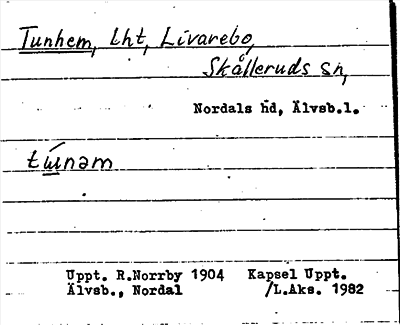 Tunhem, lht, Livarebo,
Skålleruds sn,
Nordals hd, Älvsb.l.
túnəm
Uppt. R.Norrby 1904 Kapsel Uppt.
Älvsb., Nordal /L.Aks. 1982